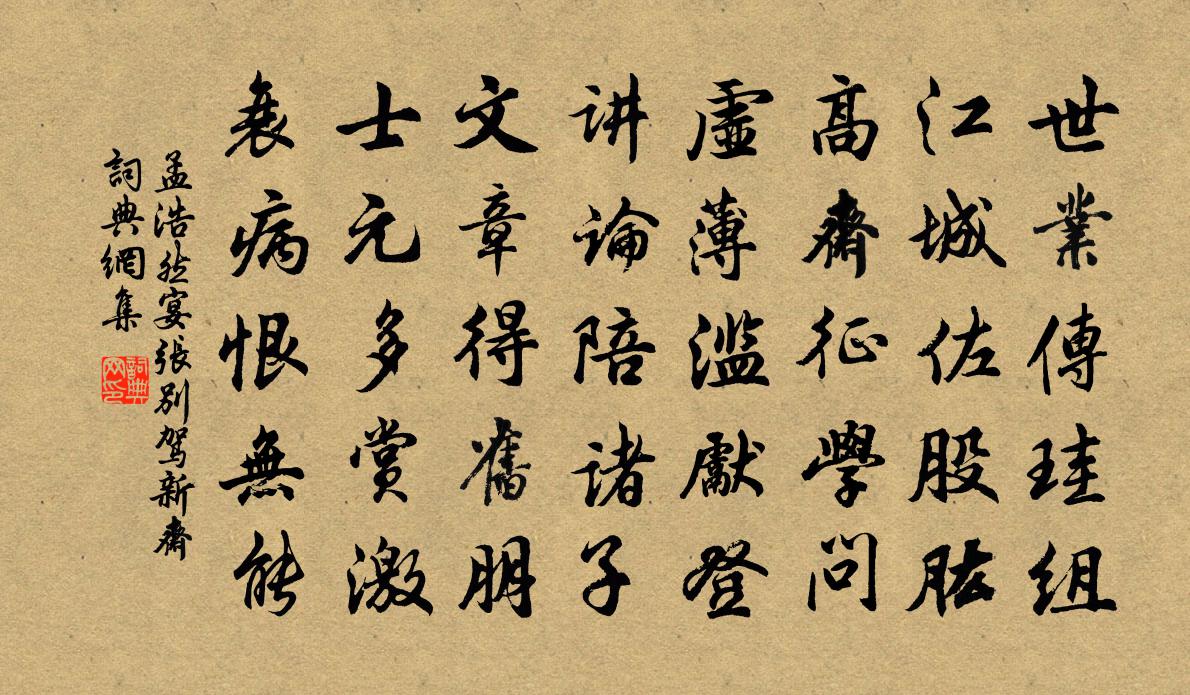 世業傳珪組
江城佐股肱
高齋征學問
虛薄滥獻登
讲論陪诸子
文章得舊朋
士元多賞激
衰病恨無能
孟浩然宴張別驾新齋
詞典網集
詞典网印